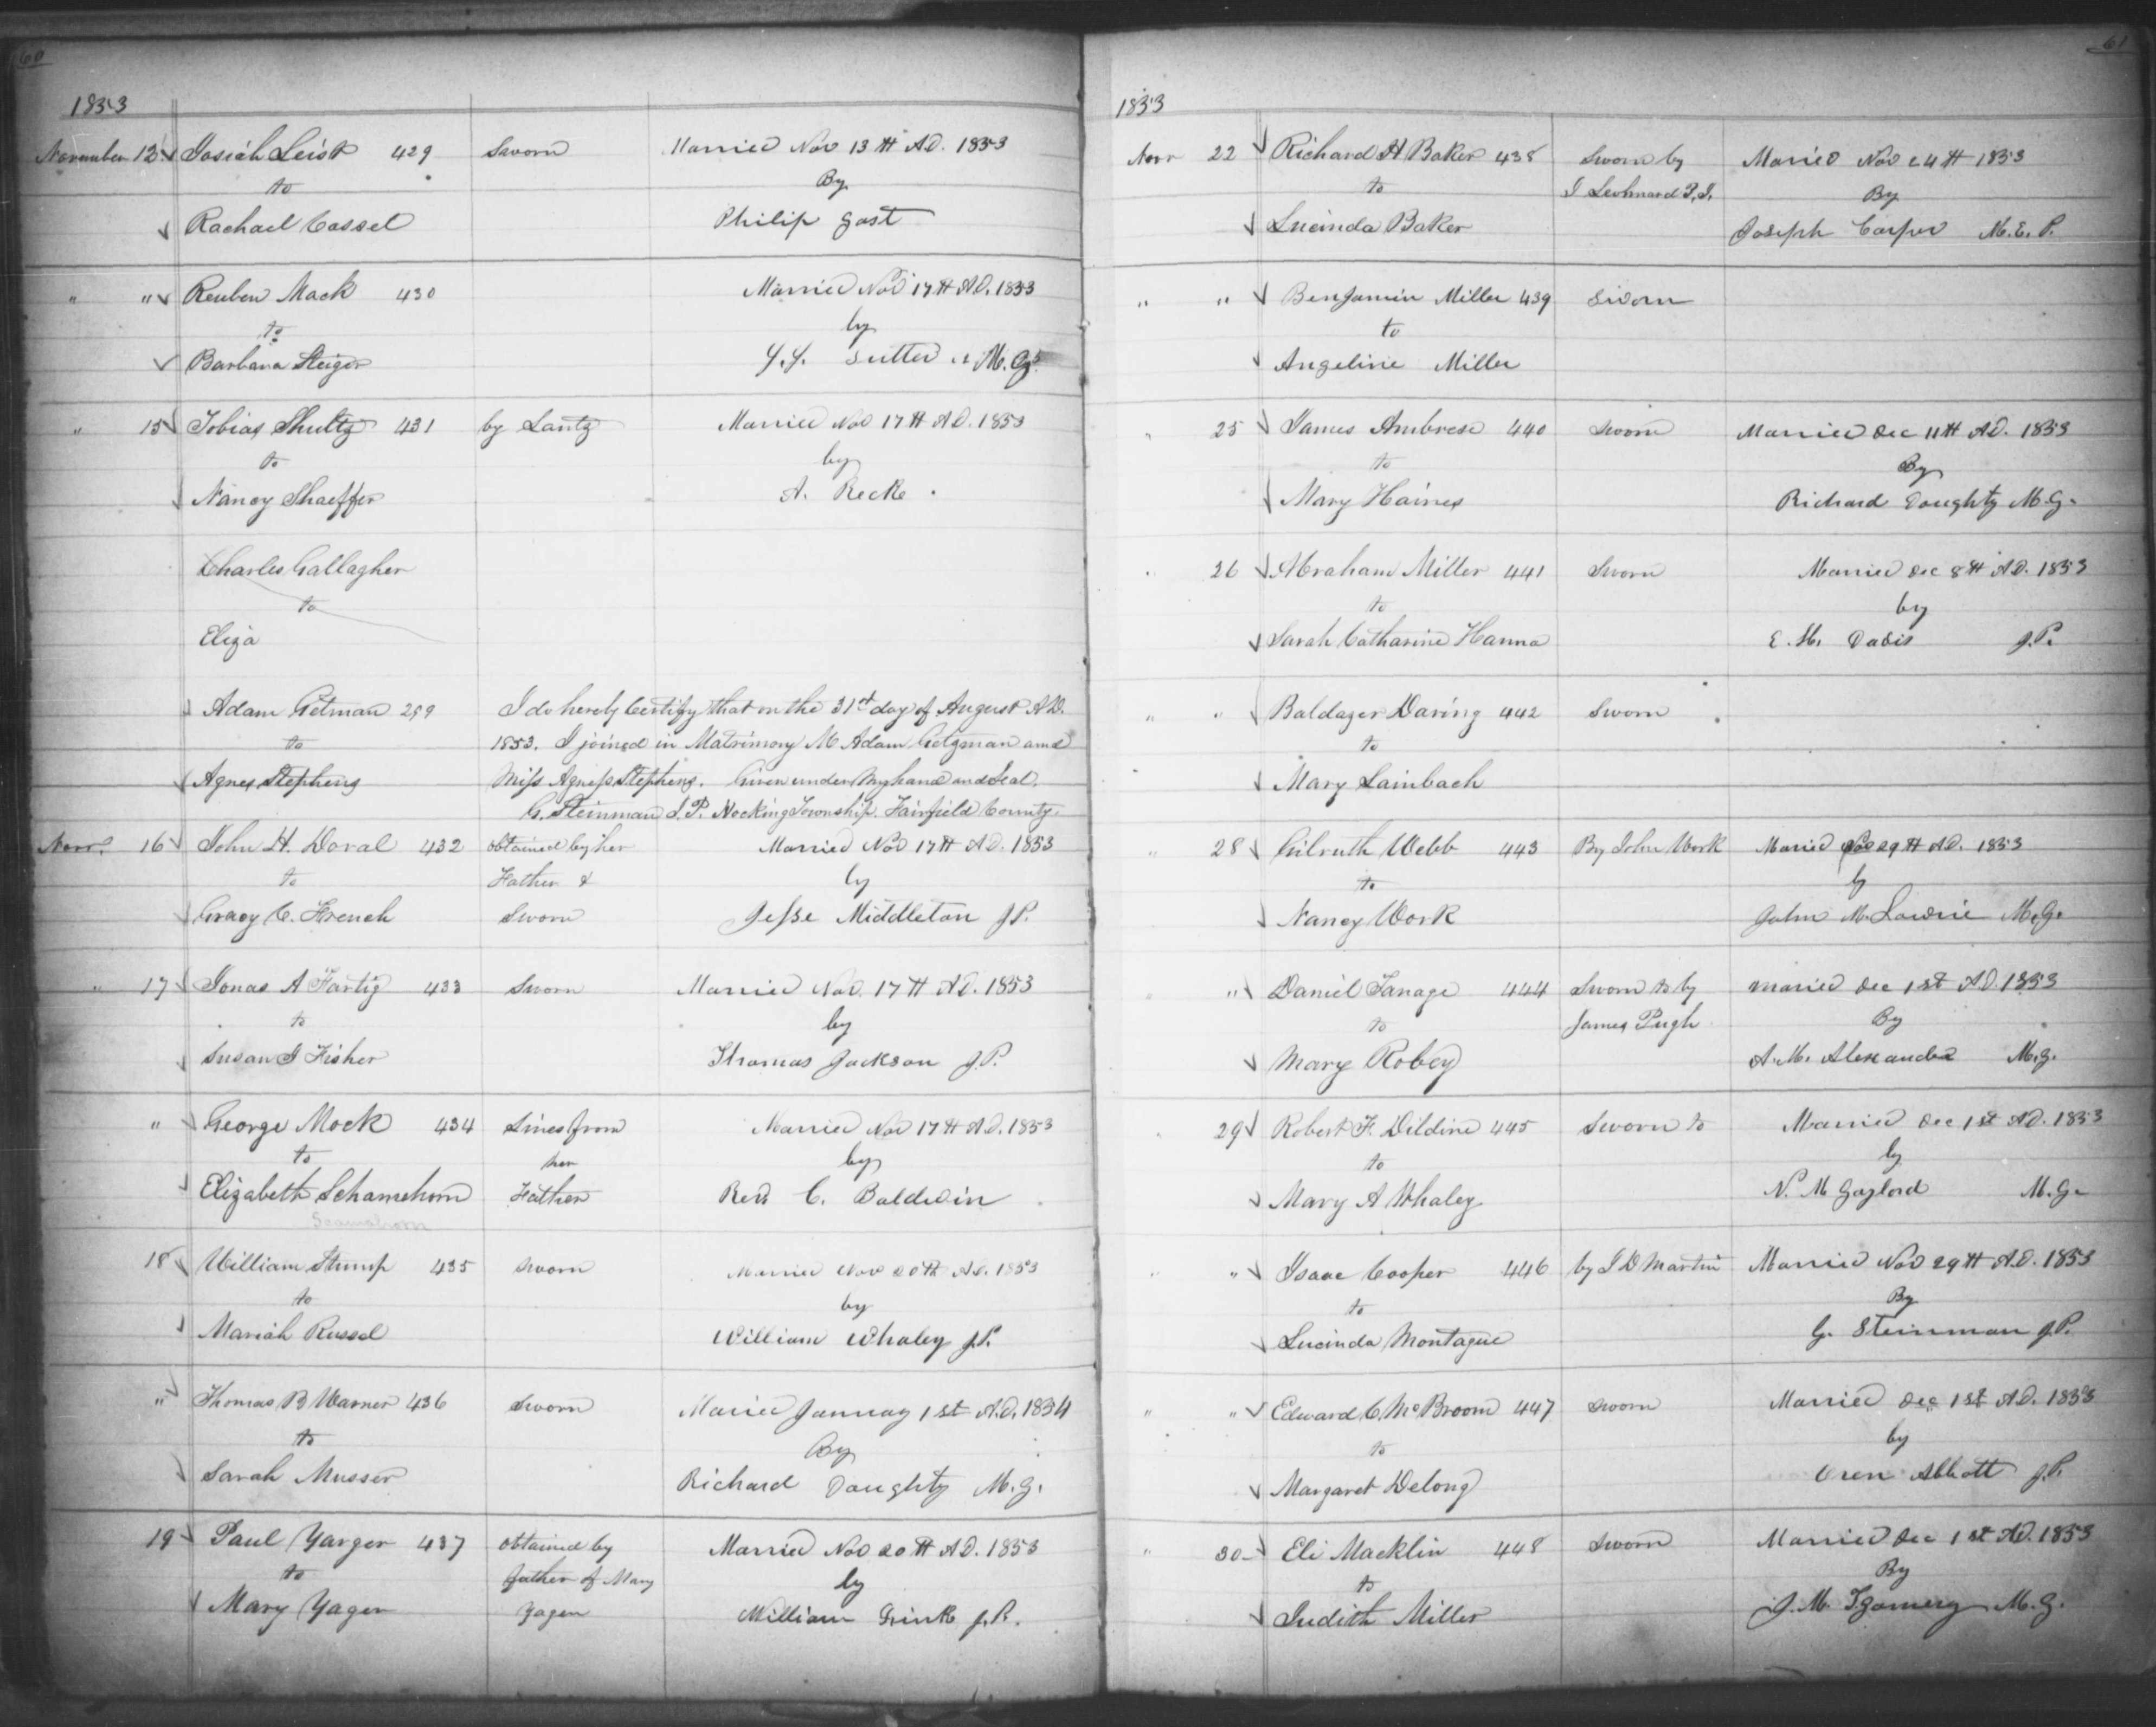 60
1853
November 12 Josiah Leist 429 Sworn Married Nov 13th A.D. 1853
to By
Rachael Cassel Philip Gast
" " Reuben Mack 430 Married Nov 17th A.D. 1853
to by
Barbara Steiger Y.Y. Sutter M.G.
" 15 Tobias Shultz 431 by Lantz Married Nov 17th A.D. 1853
to by
Nancy Shaeffer A. Recke
Charles Gallagher
to
Eliza
Adam Getman 299 I do hereby Certify that on the 31st day of August A.D.
to 1853. I joined in Matrimony M Adam Getzman and
Agnes Stephens Miss Agness Stephens. Given under my hand and Seal.
G. Steinman J.P. Hocking Township. Fairfield County.
Novr. 16 John H. Doval 432 obtained by her Married Nov 17th A.D. 1853
to Father & by
Gracy C. French Sworn Jesse Middleton J.P.
" 17 Jonas A Hartig 433 Sworn Married Nov. 17th A.D. 1853
to by
Susan J Fisher Thomas Jackson J.P.
" George Mock 434 Lines from Married Nov 17th A.D. 1853
to her by
Elizabeth Schamehorn Father Revd C. Baldwin
Scamehorn
18 William Stump 435 Sworn Married Nov 20th A.D. 1853
to by
Mariah Russel William Whaley J.P.
" Thomas B Warner 436 Sworn Maried January 1st A.D. 1854
to By
Sarah Musser Richard Doughty M.G.
19 Paul Yarger 437 obtained by Married Nov 20th A.D. 1853
to father of Mary by
Mary Yager Yager William Frink J.P.
61
1853
Novr 22 Richard H Baker 438 Sworn by Maried Nov 24th 1853
to J Leohnard P.J. By
Lucinda Baker Joseph Carper M.E.P.
" " Benjamin Miller 439 Sworn
to
Angeline Miller
" 25 James Ambrose 440 Sworn Married Dec 11th A.D. 1853
to By
Mary Haines Richard Doughty M.G.
" 26 Abraham Miller 441 Sworn Married Dec 8th A.D. 1853
to by
Sarah Catharine Hanna E. H. Davis J.P.
" " Baldazer Daring 442 Sworn
to
Mary Lainbach
" 28 Gilruth Webb 443 By John Work Maried Nov 29th A.D. 1853
to by
Nancy Work John M. Lowrie M.G.
" Daniel Tanage 444 Sworn to by Maried Dec 1st A.D. 1853
to James Pugh By
Mary Robey A.M. Alexander M.G.
29 Robert F. Dildine 445 Sworn to Married Dec 1st A.D. 1853
to by
Mary A Whaley N. M Gaylord M.G.
" " Isaac Cooper 446 by J D Martin Married Nov 29th A.D. 1853
to By
Lucinda Montague G. Steinman J.P.
" " Edward C McBroom 447 Sworn Married Dec 1st A.D. 1853
to by
Margaret Delong Oren Abbott J.P.
" 30 Eli Macklin 448 Sworn Married Dec 1st A.D. 1853
to By
Judith Miller J.M. M.G.